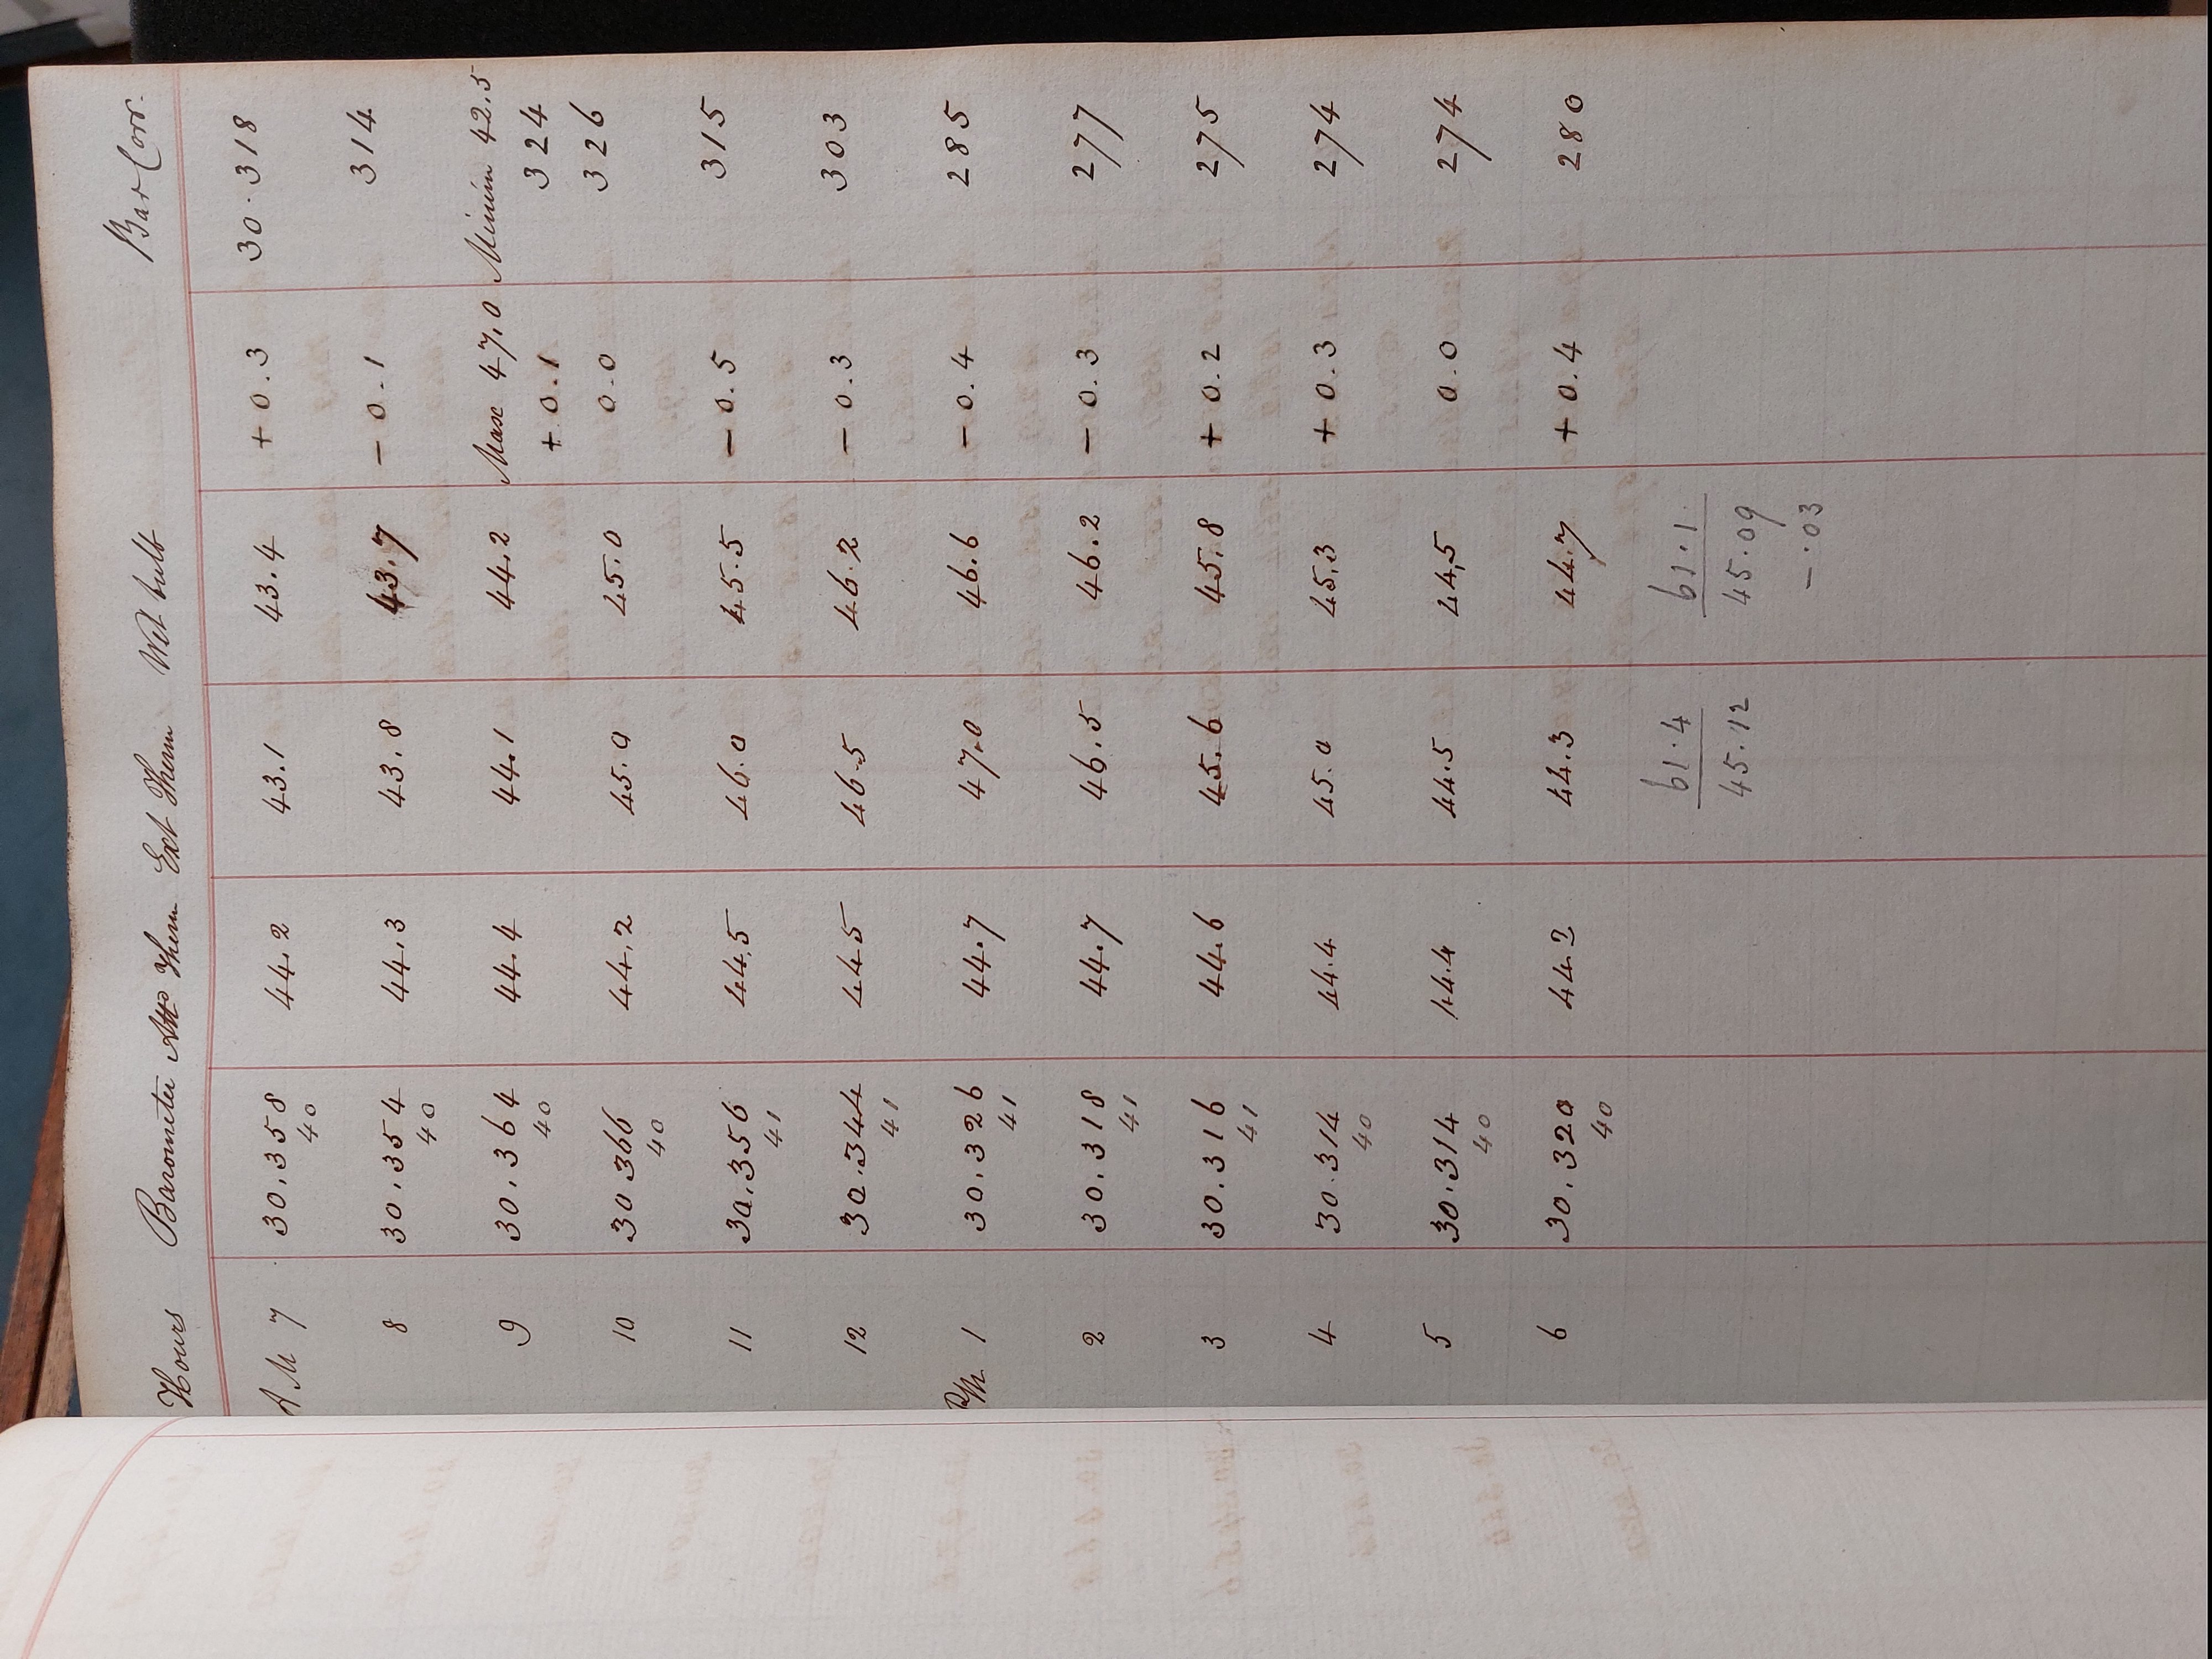 Hours Barometer Attd Therm Ext Therm Wet bulb Bar Corr.
A M 7 30.358 44.2 43.1 43.4 + 0.3 30.318
40
8 30.354 44.3 43.8 43.7 - 0.1 314
40
9 30.364 44.4 44.1 44.2 Max 47.0 Minim 42.5
40 + 0.1 324
10 30 366 44.2 45.0 45.0 0.0 326
40
11 30.356 44.5 46.0 45.5 - 0.5 315
41
12 30.344 445 46.5 46.2 - 0.3 303
41
PM 1 30.326 44.7 47.0 46.6 - 0.4 285
41
2 30.318 44.7 46.5 46.2 - 0.3 277
41
3 30.316 44.6 45.6 45.8 + 0.2 275
41
4 30.314 44.4 45.0 45.3 + 0.3 274
40
5 30.314 44.4 44.5 44.5 0.0 274
40
6 30.320 44.2 44.3 44.7 + 0.4 280
40
61.4 61.1
45.12 45.09
- .03